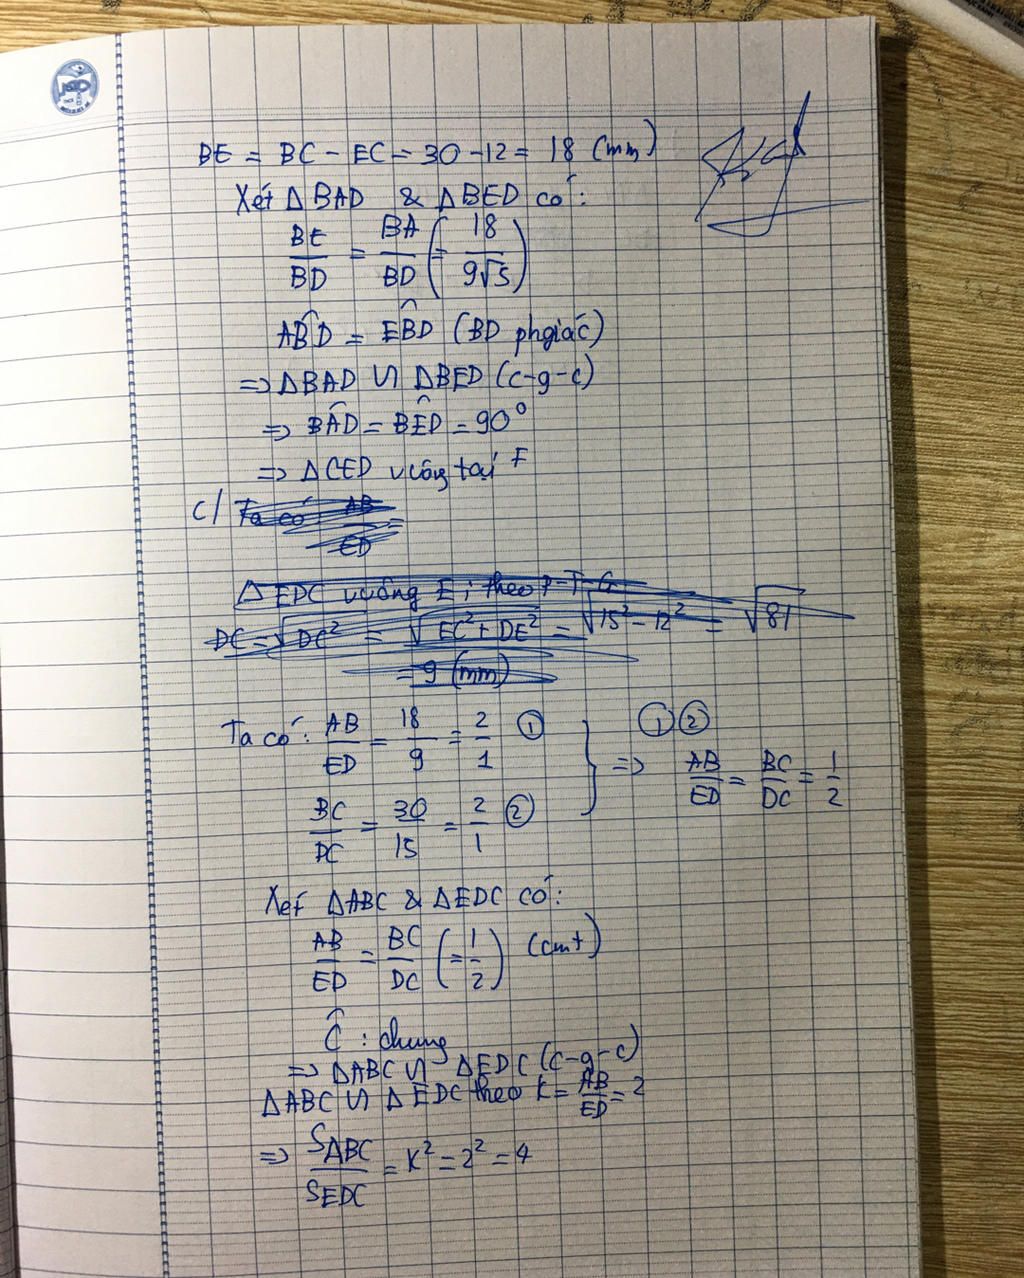 BE = BC - EC = 30 - 12 = 18 (mm)
Xét ΔBAD & ΔBED có:
BE/BD = BA/BD (= 18/9√5)
AB̂D = EB̂D (BD phgiác)
=> ΔBAD ∽ ΔBED (c-g-c)
=> BÂD = BÊD = 90°
=> ΔCED vuông tại E
c/ Ta có AB/ED =
ΔEDC vuông E; theo P-T-G
DC = √DC² = √EC² + DE² = √15² - 12² = √81
= 9 (mm)
Ta có: AB/ED = 18/9 = 2/1 ①
BC/DC = 30/15 = 2/1 ②
①② => AB/ED = BC/DC = 1/2
Xét ΔABC & ΔEDC có:
AB/ED = BC/DC (= 1/2) (cmt)
Ĉ : chung
=> ΔABC ∽ ΔEDC (c-g-c)
ΔABC ∽ ΔEDC theo K = AB/ED = 2
=> SABC/SEDC = K² = 2² = 4